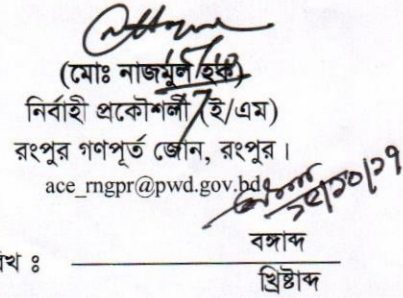 (মোঃ নাজমুল হক)
নির্বাহী প্রকৌশলী (ই/এম)
রংপুর গণপূর্ত জোন, রংপুর।
ace_rngpr@pwd.gov.bd
বঙ্গাব্দ
খ্রিষ্টাব্দ